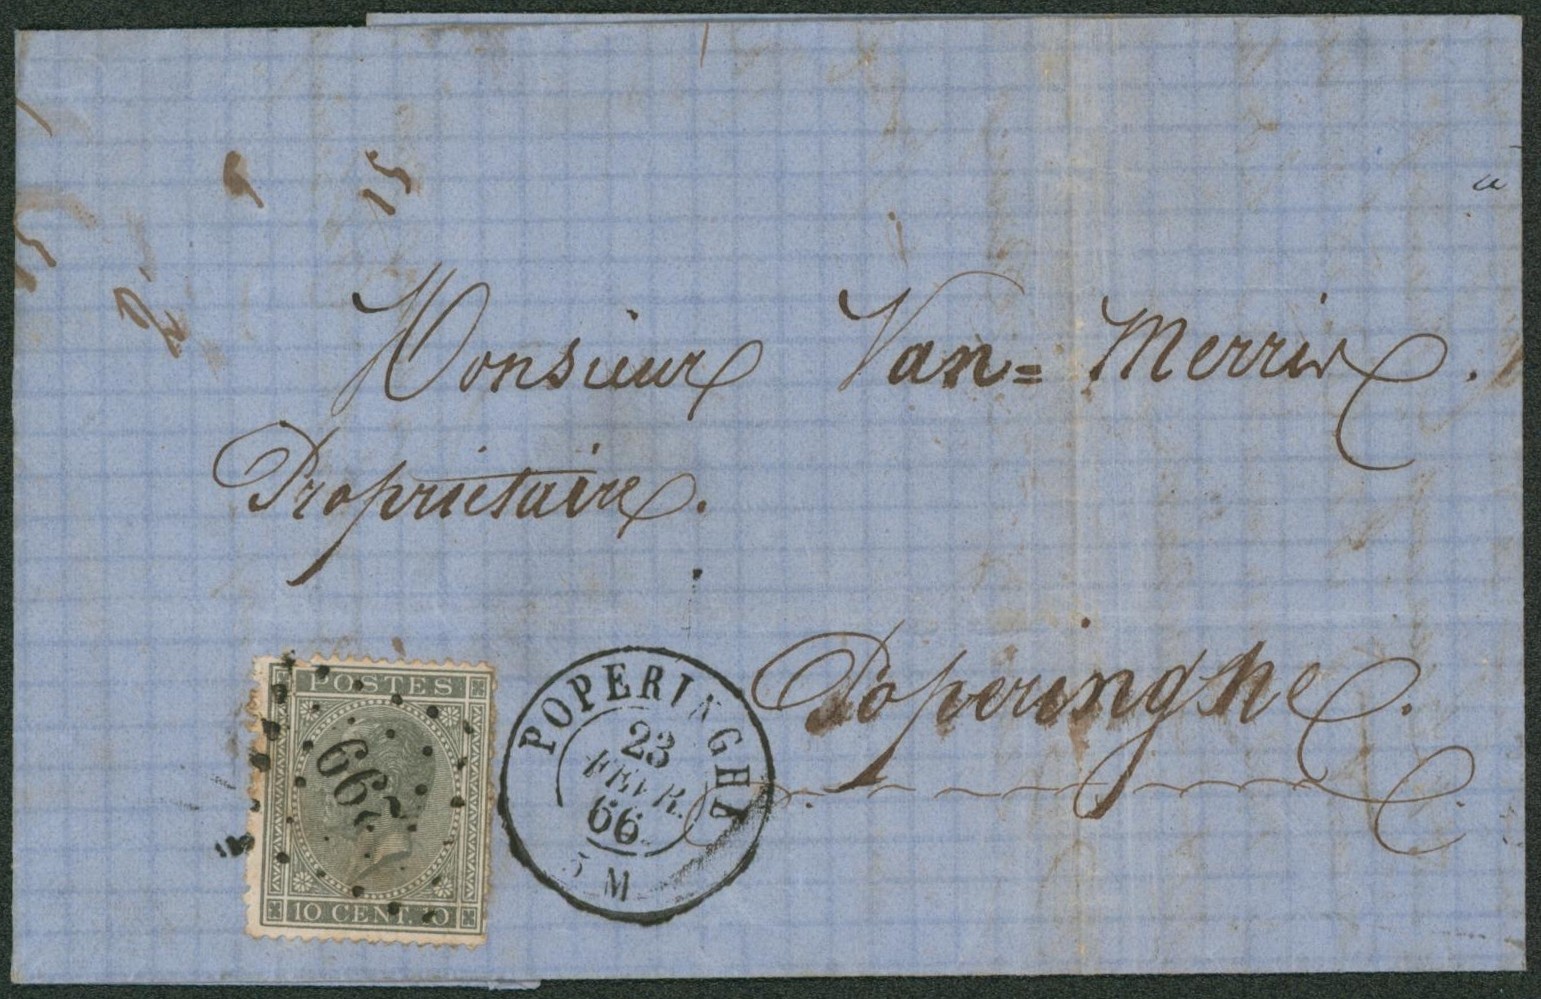 15
2
Monsieur Van= Merris.
Propriétaire.
Poperinghe.
POSTES
299
10 CENT. 10
POPERINGHE
23
FEVR.
66
5 M